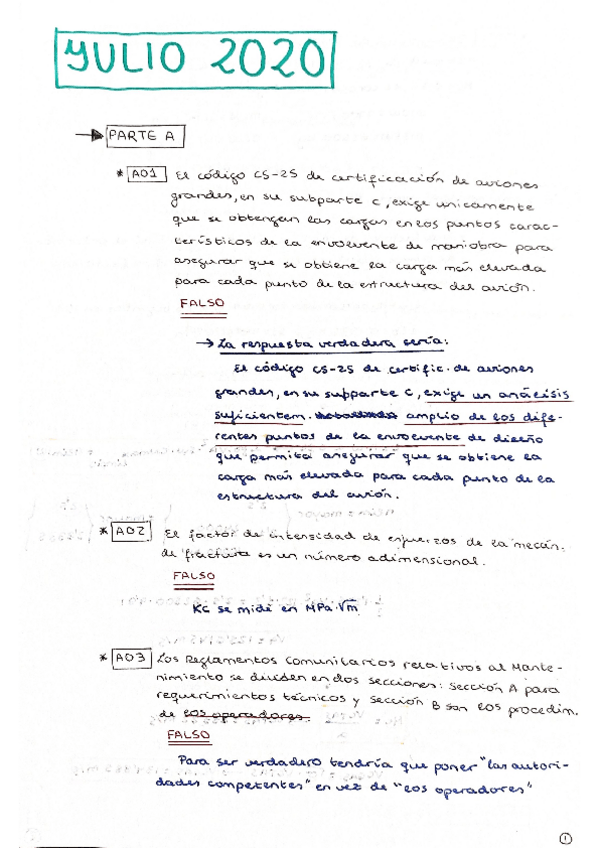 JULIO 2020
PARTE A
* A01 El código CS-25 de certificación de aviones
grandes, en su subparte C, exige unicamente
que se obtengan las cargas en los puntos carac-
terísticos de la envolvente de maniobra para
asegurar que se obtiene la carga más elevada
para cada punto de la estructura del avión.
FALSO
→ La respuesta verdadera sería:
El código CS-25 de certific. de aviones
grandes, en su subparte C, exige un análisis
suficientem. amplio de los dife-
rentes puntos de la envolvente de diseño
que permita asegurar que se obtiene la
carga más elevada para cada punto de la
estructura del avión.
* A02 El factor de intensidad de esfuerzos de la mecán.
de fractura es un número adimensional.
FALSO
Kc se mide en MPa·√m
* A03 Los Reglamentos Comunitarios relativos al Mante-
nimiento se dividen en dos secciones: sección A para
requerimientos técnicos y sección B son los procedim.
de los operadores.
FALSO
Para ser verdadero tendría que poner "las autori-
dades competentes" en vez de "los operadores"
1